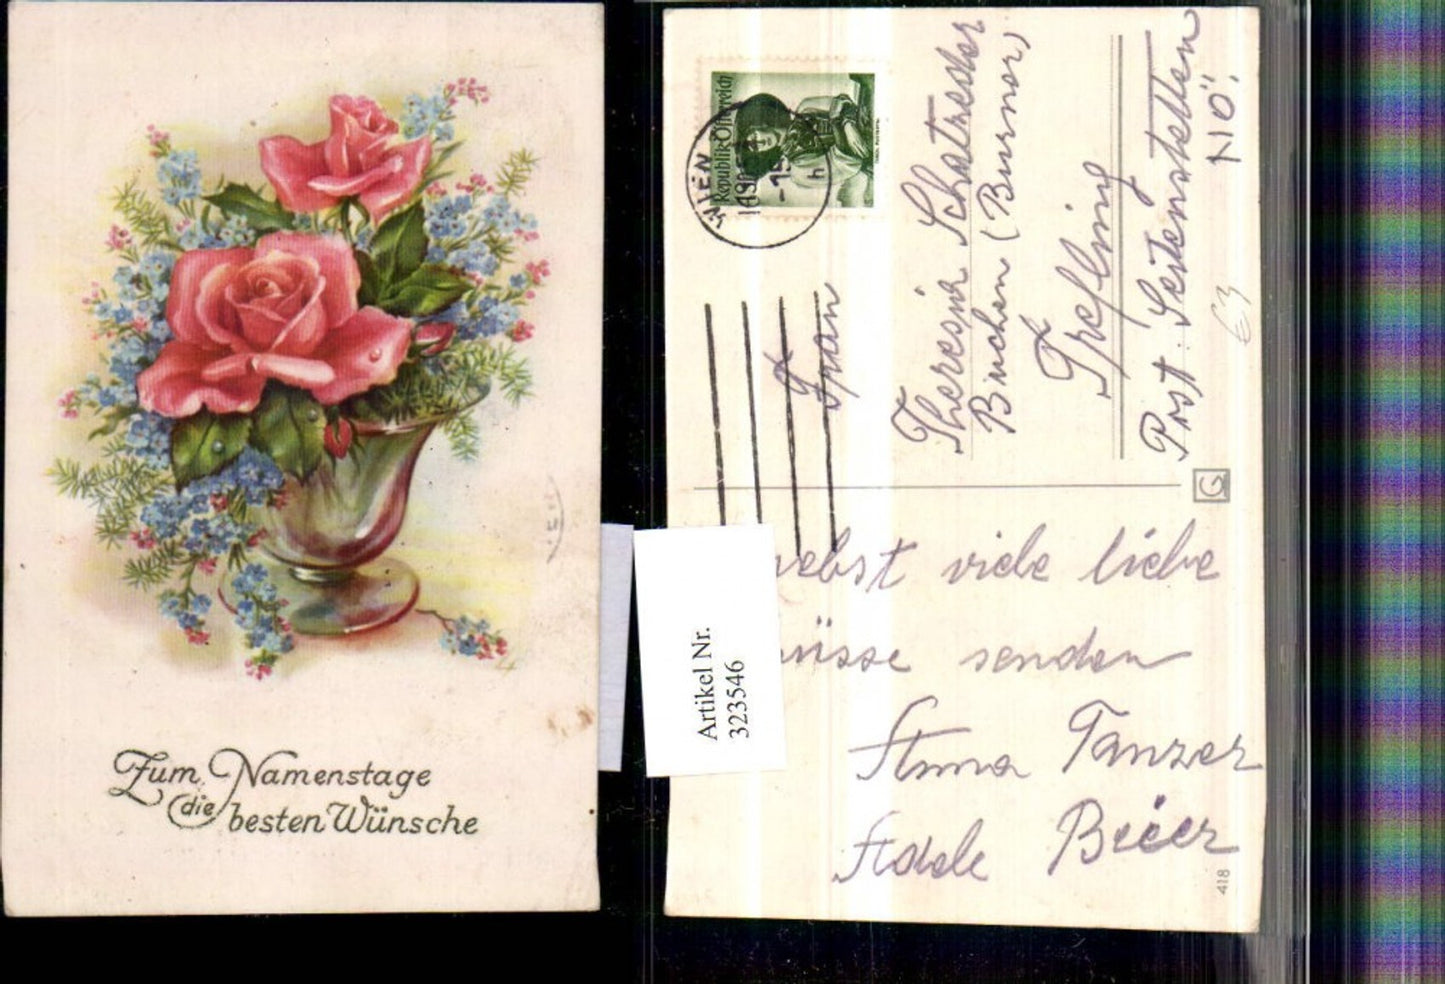 Zum Namenstage
die besten Wünsche
Republik Österreich
WIEN
Frau
Theresia Schatreder
Binchen (Burner)
Trefling
Post Seitenstetten
N.Ö.
€3
G
Artikel Nr.
323546
nebst viele liebe
Grüsse senden
Anna Tanzer
Adele Beier
418